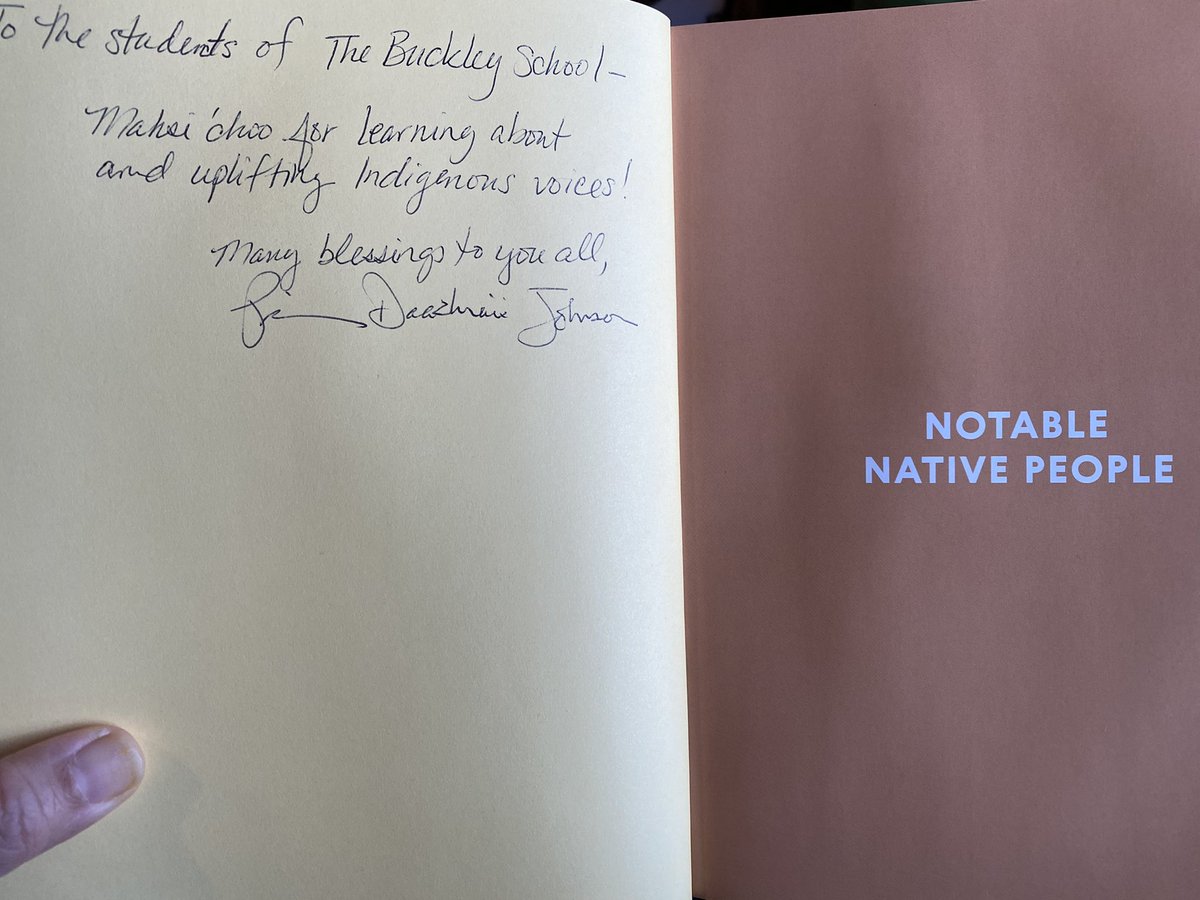 To the students of The Buckley School—
Mahsi'choo for learning about
and uplifting Indigenous voices!
Many blessings to you all,
Daazhraii Johnson
NOTABLE
NATIVE PEOPLE